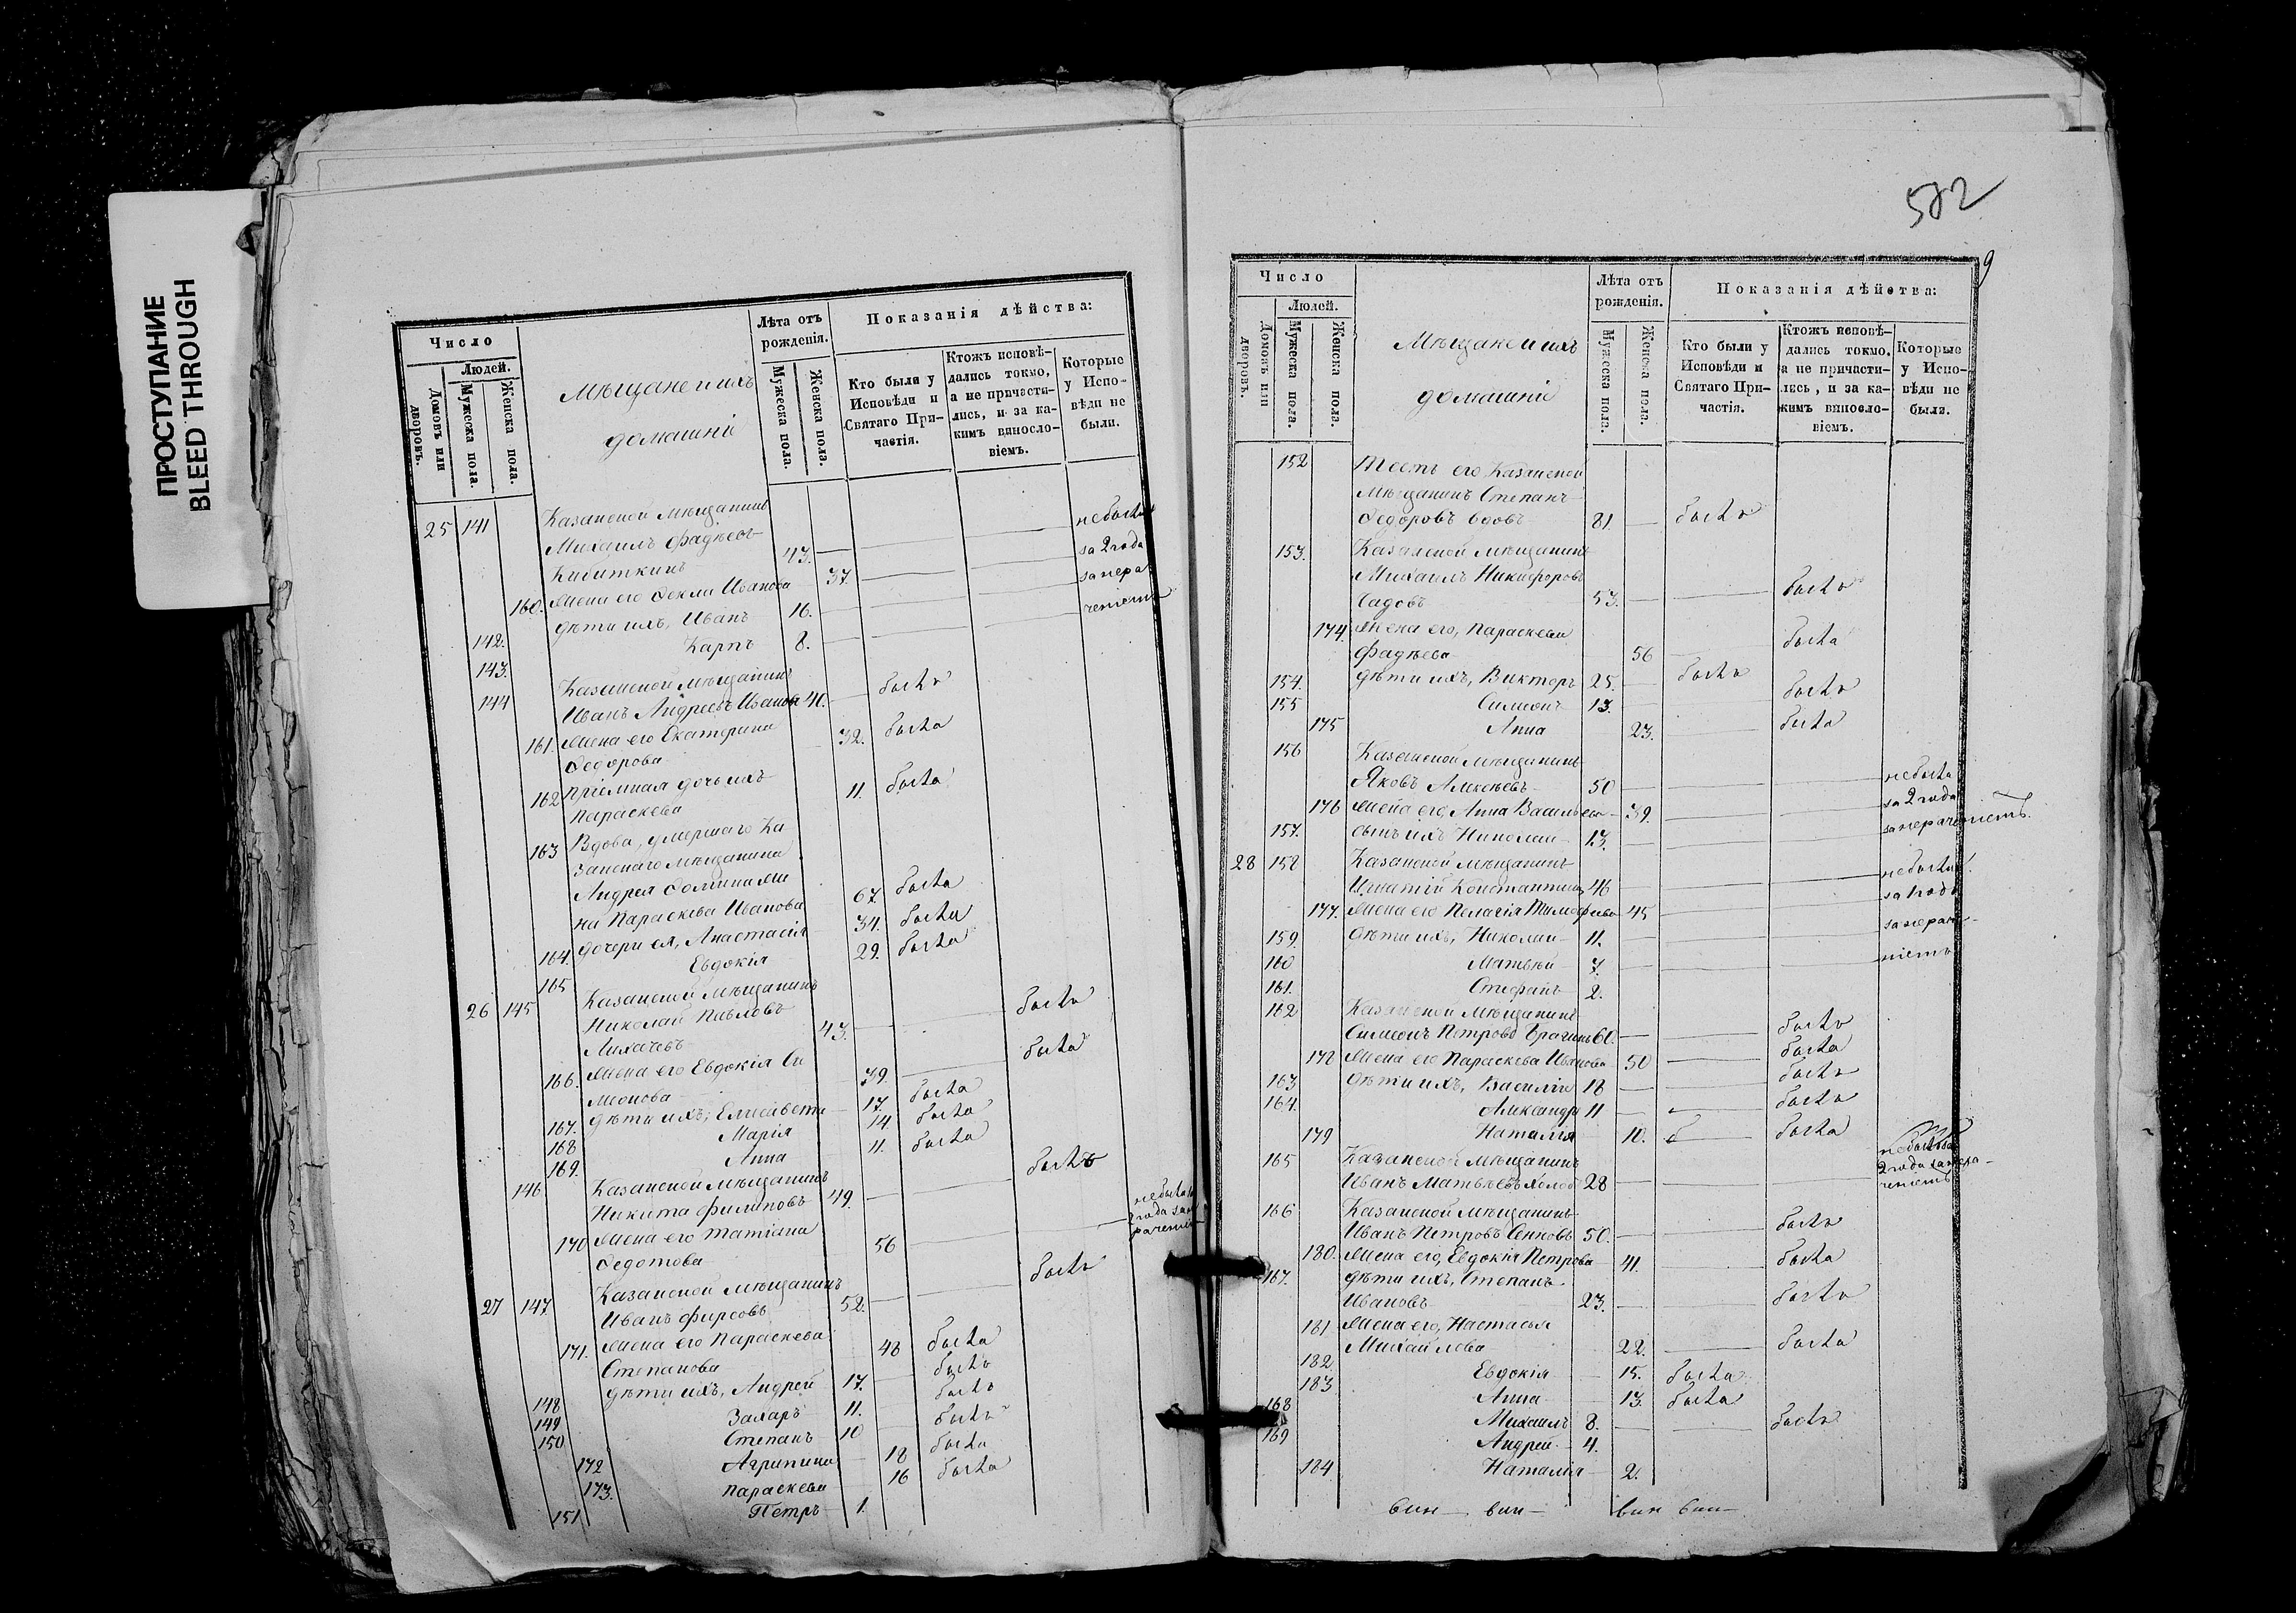 ПРОСТУПАНИЕ
BLEED THROUGH
Число
Людей.
Домовъ или дворовъ.
Мужеска пола.
Женска пола.
Мѣщане и ихъ
домашніи
Лѣта отъ рожденія.
Мужеска пола.
Женска пола.
Показанія дѣйства:
Кто были у Исповѣди и Святаго Причастія.
Ктожъ исповѣдались токмо, а не причастились, и за какимъ винословіемъ.
Которые у Исповѣди не были.
25 141 Казанской мѣщанинъ
Михаилъ Фадѣевъ
Кибиткинъ 43. — небылъ
160. Жена его Фекла Иванова 37. за 2 года
142. дѣти ихъ, Иванъ 16. за нера
143. Карпъ 8. ченіемъ
144 Казанской мѣщанинъ
Иванъ Андреевъ Ивановъ 41. — былъ
161. Жена его Екатерина
Федорова 32. была
162 Пріемная дочь ихъ
Параскева 11. была
163 Вдова, умершаго Ка
занскаго мѣщанина
Андрея Фомина же
на Параскева Иванова 67. была
164. дочери ея, Анастасія 34. была
165 Евдокія 29. была
26 145 Казанской мѣщанинъ
Николай Павловъ
Лихачевъ 43. — былъ
166. Жена его Евдокія Си
меонова 39. — была
167. дѣти ихъ, Елисавета 17. была
168 Марія 14 была
169. Анна 11. была
146 Казанской мѣщанинъ
Никита Филиповъ 49. — былъ
170 Жена его Татіана
Федотова 56 — небыла
27 147 Казанской мѣщанинъ
Иванъ Фирсовъ 52. — былъ
171. Жена его Параскева
Степанова 48 была
148 дѣти ихъ, Андрей 17. — былъ
149 Захаръ 11. — былъ
150 Степанъ 10 — былъ
172 Агрипина — 18 была
173. Параскева 16 была
151 Петръ 1.
582
9
Число
Людей.
Домовъ или дворовъ.
Мужеска пола.
Женска пола.
Мѣщане и ихъ
домашніи
Лѣта отъ рожденія.
Мужеска пола.
Женска пола.
Показанія дѣйства:
Кто были у Исповѣди и Святаго Причастія.
Ктожъ исповѣдались токмо, а не причастились, и за какимъ винословіемъ.
Которые у Исповѣди не были.
152 Тесть его Казанской
Мѣщанинъ Степанъ
Федоровъ вдовъ 81. — былъ
153. Казанской мѣщанинъ
Михаилъ Никифоровъ
Садовъ 53. — былъ
174. Жена его, Параскева
Фадѣева 56 была
154. дѣти ихъ, Викторъ 25. — былъ
155 Симеонъ 13. — былъ
175 Анна 23. — была
156 Казанской мѣщанинъ
Яковъ Алексѣевъ 50 — небыла
176 Жена его, Анна Васильева 39. — за 2 года
157. сынъ ихъ Николай 13. — за нераченіемъ.
28 158 Казанской мѣщанинъ
Игнатій Константинъ 46 — небылъ
177. Жена его Пелагія Тимофѣева 45
159. дѣти ихъ, Николай 11.
160 Матвѣй 7.
161. Стефанъ 2.
162 Казанской мѣщанинъ
Симеонъ Петровъ 60. — былъ
178 Жена его Параскева Иванова 50 — была
163 дѣти ихъ, Василій 18 — былъ
164. Александръ 11 — былъ
179 Наталія 10. — была
165 Казанской мѣщанинъ
Иванъ Матвѣевъ 28 — небылъ за
2 года за нера
ченіемъ
166 Казанской мѣщанинъ
Иванъ Петровъ 50. — былъ
180. Жена его, Евдокія Петрова 41. — была
167. дѣти ихъ, Степанъ
Ивановъ 23. — былъ
181 Жена его, Настасья
Михайлова 22. — была
182 Евдокія — 15. была
183 Анна — 13. была
168 Михаилъ 8. — былъ
169 Андрей 4.
184 Наталія — 2.